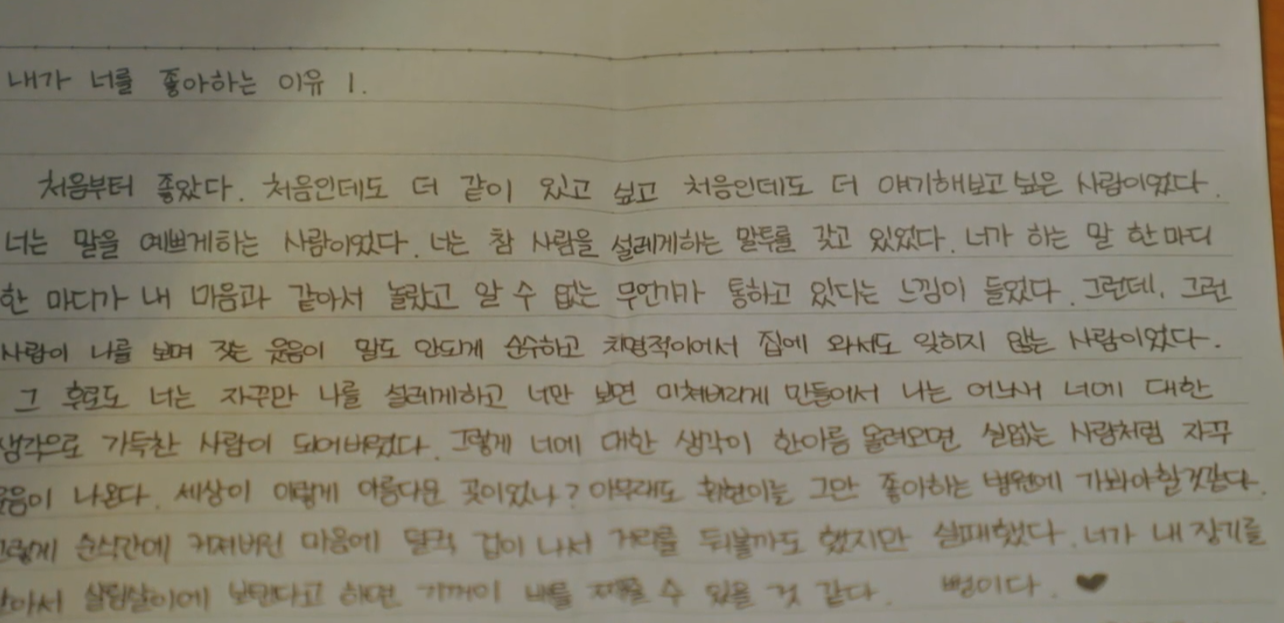 내가 너를 좋아하는 이유 1.
처음부터 좋았다. 처음인데도 더 같이 있고 싶고 처음인데도 더 얘기해보고 싶은 사람이었다.
너는 말을 예쁘게하는 사람이었다. 너는 참 사람을 설레게하는 말투를 갖고 있었다. 너가 하는 말 한마디
한 마디가 내 마음과 같아서 놀랐고 알 수 없는 무언가가 통하고 있다는 느낌이 들었다. 그런데, 그런
사람이 나를 보며 짓는 웃음이 말도 안되게 순수하고 치명적이어서 집에 와서도 잊히지 않는 사람이었다.
그 후로도 너는 자꾸만 나를 설레게하고 너만 보면 미쳐버리게 만들어서 나는 어느새 너에 대한
생각으로 가득찬 사람이 되어버렸다. 그렇게 너에 대한 생각이 한아름 몰려오면 실없는 사람처럼 자꾸
웃음이 나온다. 세상이 이렇게 아름다운 곳이었나? 아무래도 그만 좋아하는 병원에 가봐야할것같다.
그렇게 순식간에 커져버린 마음에 덜컥 겁이 나서 거리를 둬볼까도 했지만 실패했다. 너가 내 장기를
살림살이에 보탠다고 하면 기꺼이 배를 수 있을 것 같다. 뻥이다. ♥